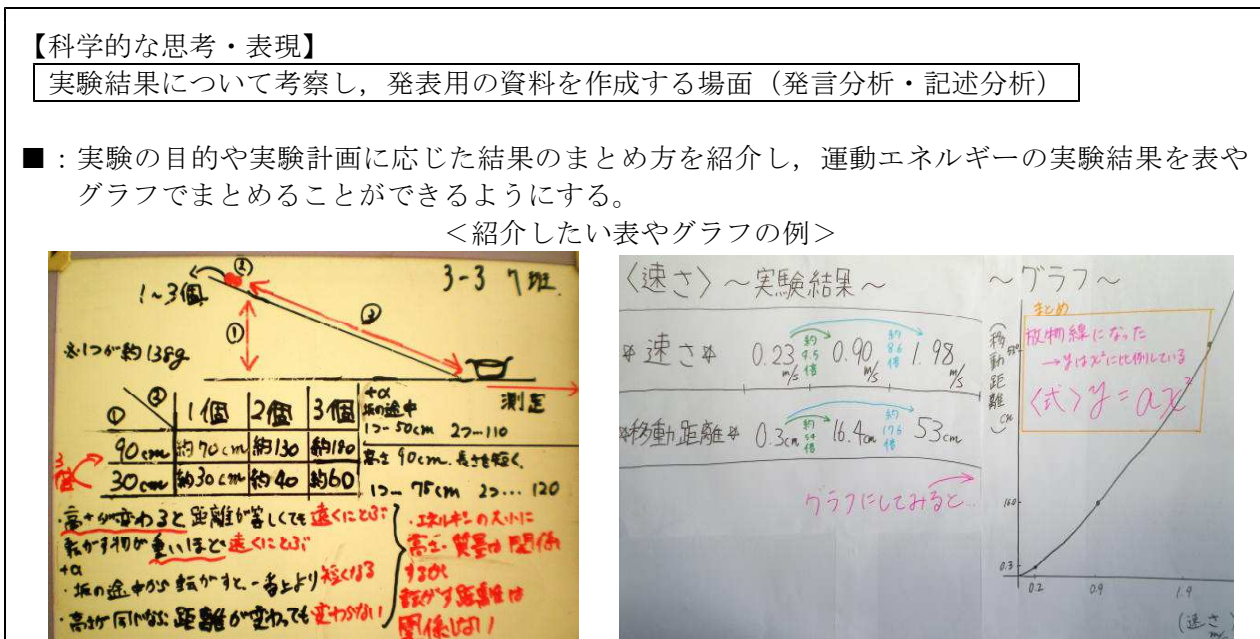 【科学的な思考・表現】
実験結果について考察し，発表用の資料を作成する場面（発言分析・記述分析）
■：実験の目的や実験計画に応じた結果のまとめ方を紹介し，運動エネルギーの実験結果を表や
グラフでまとめることができるようにする。
＜紹介したい表やグラフの例＞
3-3 7班
②
1~3個
①
②
※1つが約138g
測定
① ②
1個 2個 3個
90cm 約70cm 約130 約180
30cm 約30cm 約40 約60
+α
坂の途中
1つ-50cm 2つ-110
高さ90cm.長さを短く
1つ- 75cm 2つ... 120
・高さが変わると距離が等しくても遠くにとぶ
転がす物が重いほど遠くにとぶ
+α
・坂の途中から転がすと、一番上より短くなる
・高さが同じなら距離が変わっても変わらない
・エネルギーの大小に
高さ・質量は関係
するが
転がす距離は
関係しない
〈速さ〉～実験結果～
*速さ* 0.23m/s 0.90m/s 1.98m/s
*移動距離* 0.3cm 16.4cm 53cm
グラフにしてみると…
～グラフ～
まとめ
放物線になった
→yはx²に比例している
〈式〉y=ax²
(移動距離)cm
0.3
0.2 0.9 1.9
(速さ)
m/s